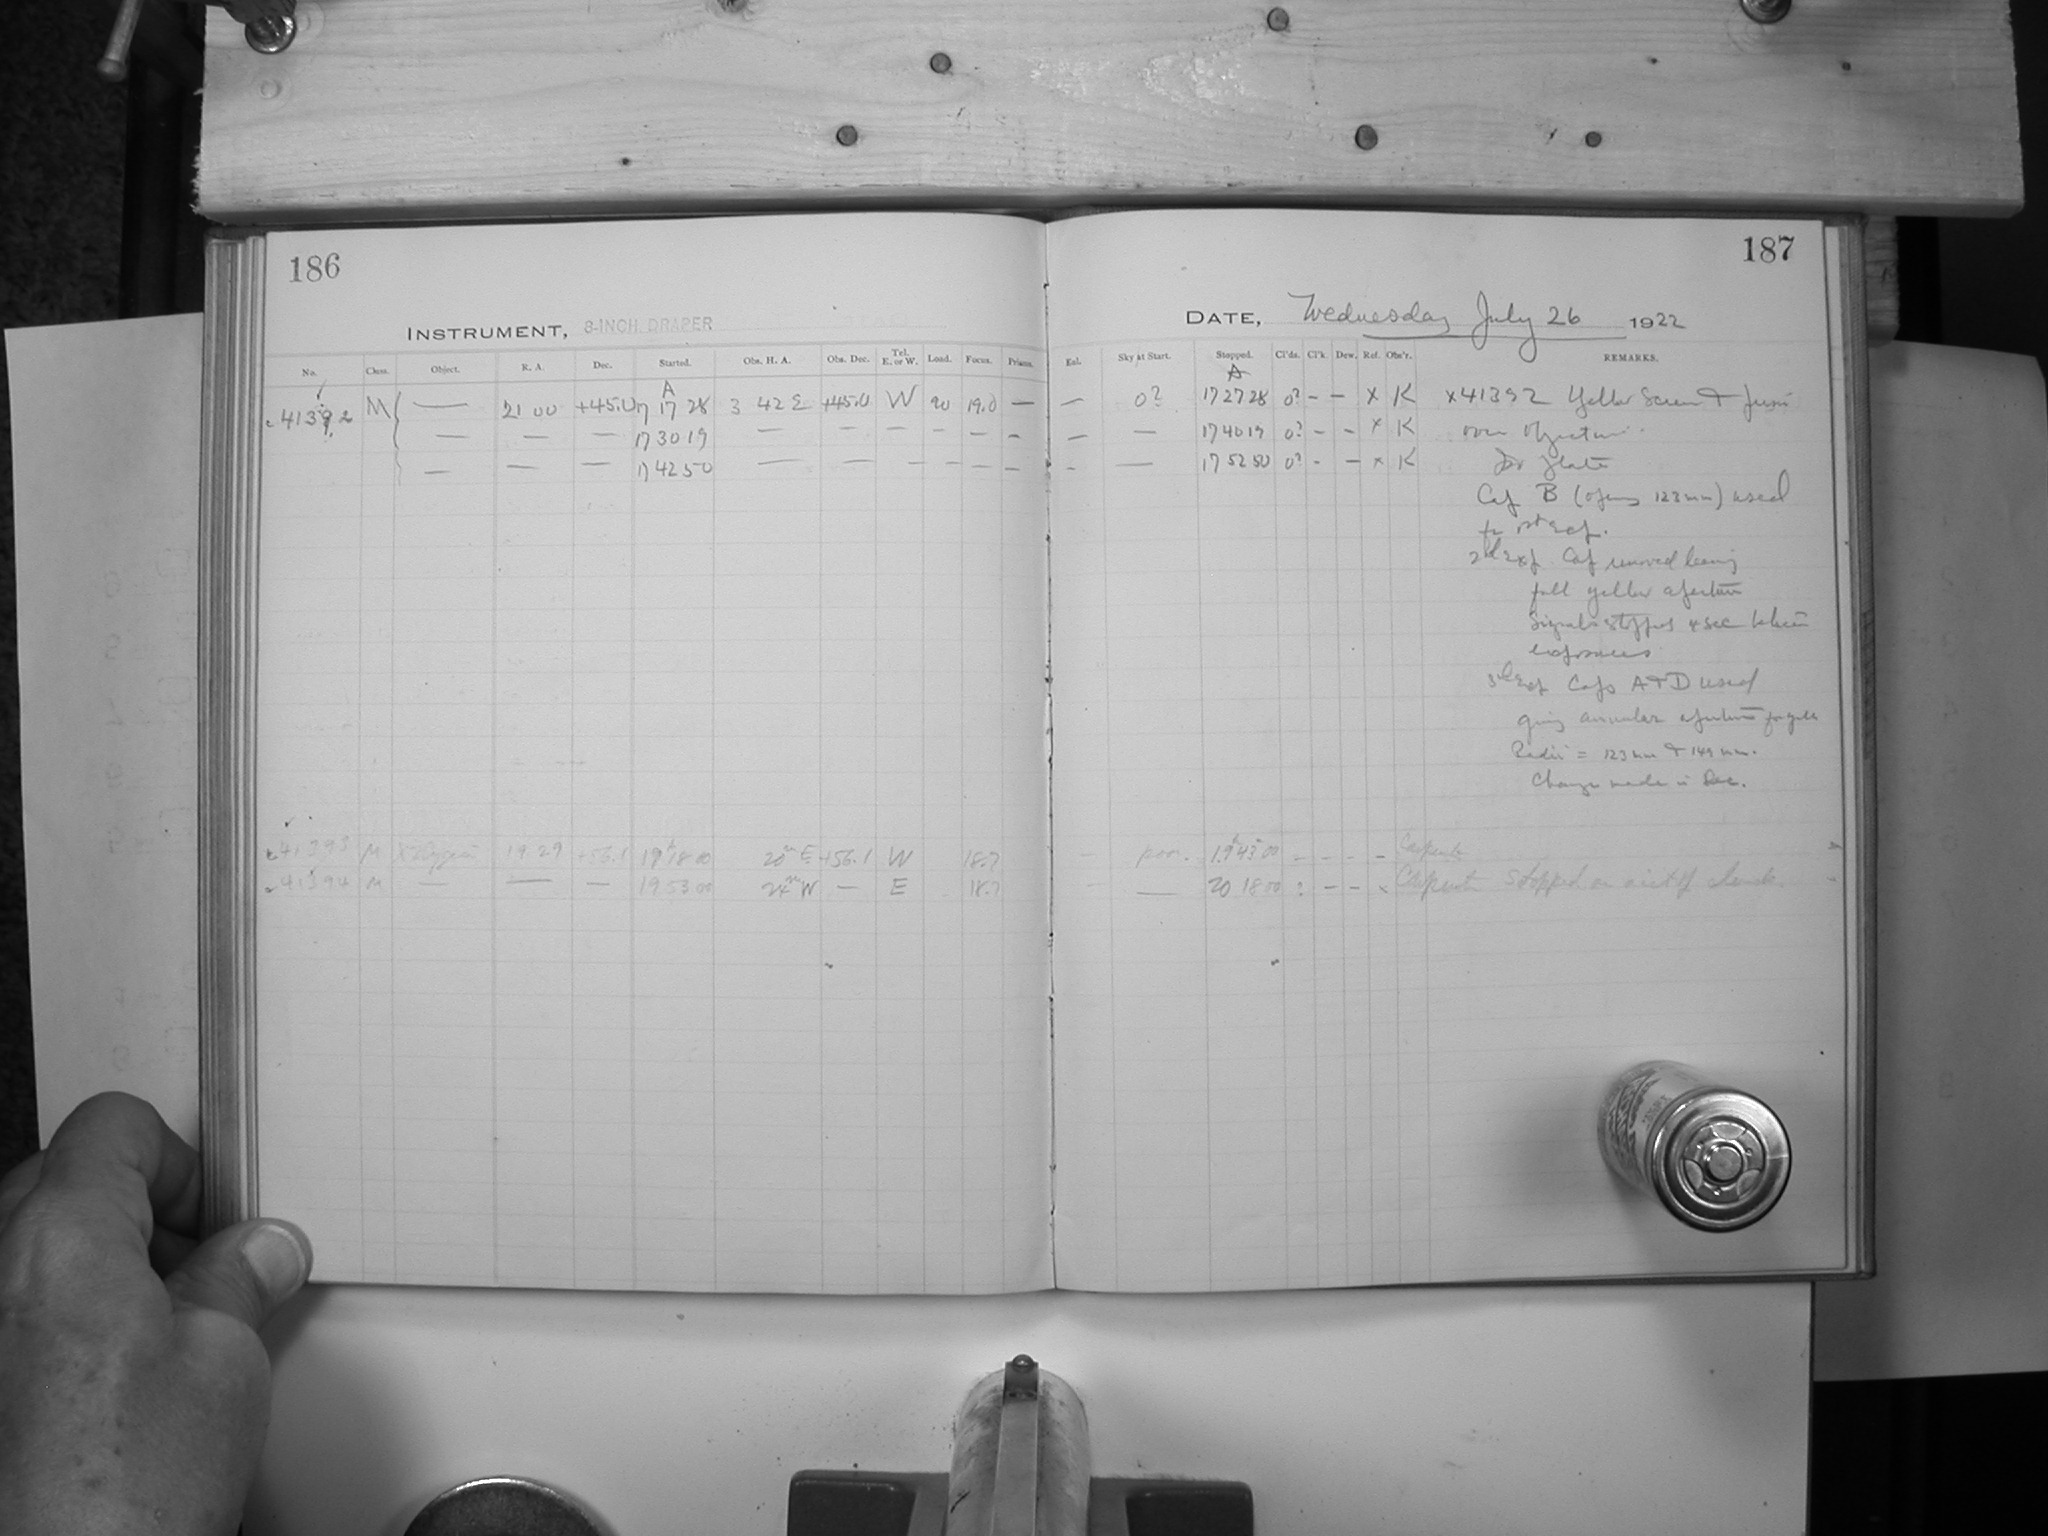 186
187
INSTRUMENT, 8-INCH DRAPER
DATE, Wednesday July 26 1922
No. Class. Object. R. A. Dec. Started. Obs. H. A. Obs. Dec. Tel. E. or W. Load. Focus. Prisms.
Sky at Start. Stopped. Cl'ds. Cl'k. Dew. Ref. Obs'r. REMARKS.
A
A
c 41392 M — 21 00 +45.0 17 17 28 3 42 E +45.0 W 90 19.0 —
— 0? 17 27 28 0? – – x K x41392 Yellow Screen +
— — — 17 30 19 — — – – – – –
— — 17 40 19 0? – – x K over
— — — 17 42 50 — — – – – – –
– — 17 52 50 0? - – x K
Cap B (opening 123 mm) used
for 1st Exp.
2nd Exp. Cap removed leaving
full yellow aperture
Signals stopped 4 sec
exposures
3rd Exp Caps A + D used
giving annular aperture
Radii = 123 mm + 149 mm.
Change made in Dec.
c 41393 M 19 29 +56.1 19h 18 00 20m E +56.1 W 18.7
poor. 19h 43m 00 – – – – Carpenter
c 41394 M — — — 19 53 00 24m W — E 18.7
— 20 18 00 : – – x Carpenter Stopped on acct of clouds.